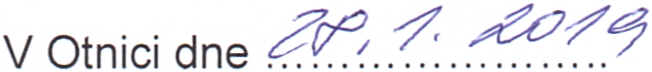 V Otnici dne 28.1.2019